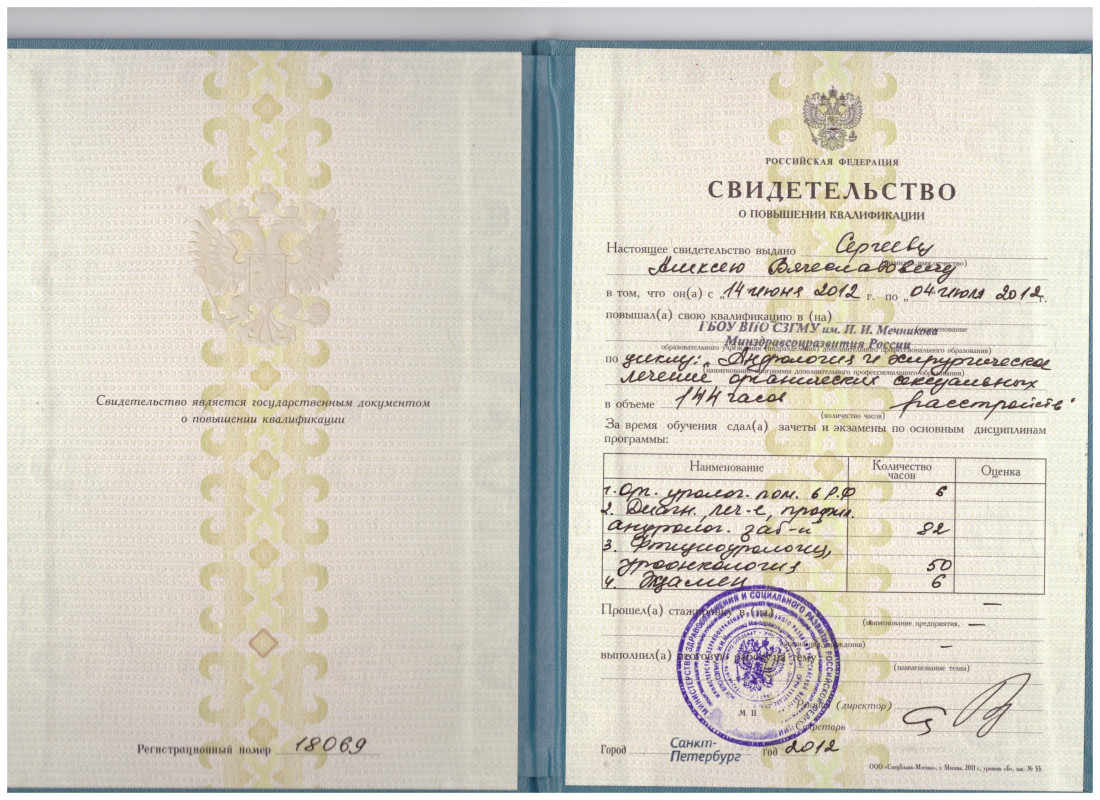 Свидетельство является государственным документом
о повышении квалификации
Регистрационный номер 18069
РОССИЙСКАЯ ФЕДЕРАЦИЯ
СВИДЕТЕЛЬСТВО
О ПОВЫШЕНИИ КВАЛИФИКАЦИИ
Настоящее свидетельство выдано Сергееву
Алексею Вячеславовичу
в том, что он(а) с „14 июня 2012 г. по „04 июля 2012 г.
повышал(а) свою квалификацию в (на)
ГБОУ ВПО СЗГМУ им. И. И. Мечникова
(наименование
Минздравсоцразвития России
образовательного учреждения (подразделения) дополнительного профессионального образования)
по циклу: „Андрология и хирургическое
(наименование программы дополнительного профессионального образования)
лечение органических сексуальных
в объеме 144 часов расстройств"
(количество часов)
За время обучения сдал(а) зачеты и экзамены по основным дисциплинам
программы:
Наименование Количество часов Оценка
1. Орг. уролог. пом. в Р.Ф 6
2. Диагн. леч-е, профил.
андролог. заб-й 82
3. Фтизиоурология,
уроонкология 50
4. Экзамен 6
Прошел(а) стажировку в (на) —
(наименование предприятия, —
выполнил(а) итоговую работу на тему —
(наименование темы)
М. П. Ректор (директор)
Секретарь
Город Санкт-Петербург год 2012
ООО «СпецБланк-Москва», г. Москва, 2011 г., уровень «Б», зак. № 55.